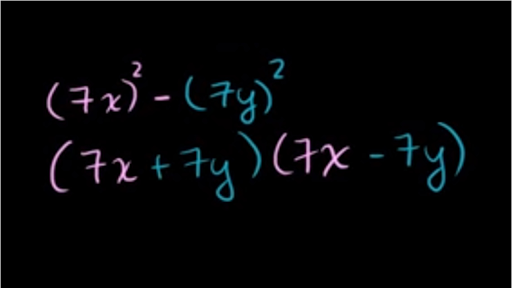 (7x)² - (7y)²
(7x + 7y)(7x - 7y)